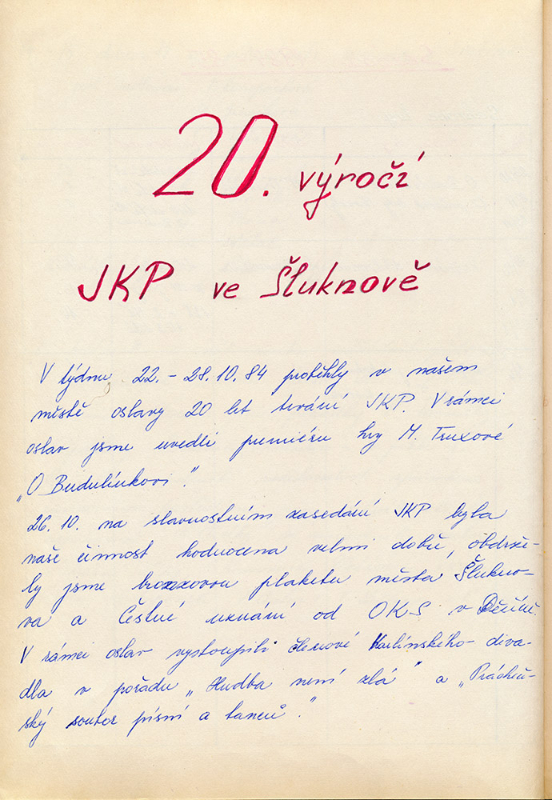 20. výročí
JKP ve Šluknově
V týdnu 22. - 28.10.84 proběhly v našem
městě oslavy 20 let trvání JKP. V rámci
oslav jsme uvedli premiéru hry M. Truxové
„O Budulínkovi".
26.10. na slavnostním zasedání JKP byla
naše činnost hodnocena velmi dobře, obdrže-
ly jsme bronzovou plaketu města Šlukno-
va a Čestné uznání od OKS v Děčíně.
V rámci oslav vystoupili členové Karlínského diva-
dla v pořadu „Hudba není zlá" a „Prácheň-
ský soubor písní a tanců."